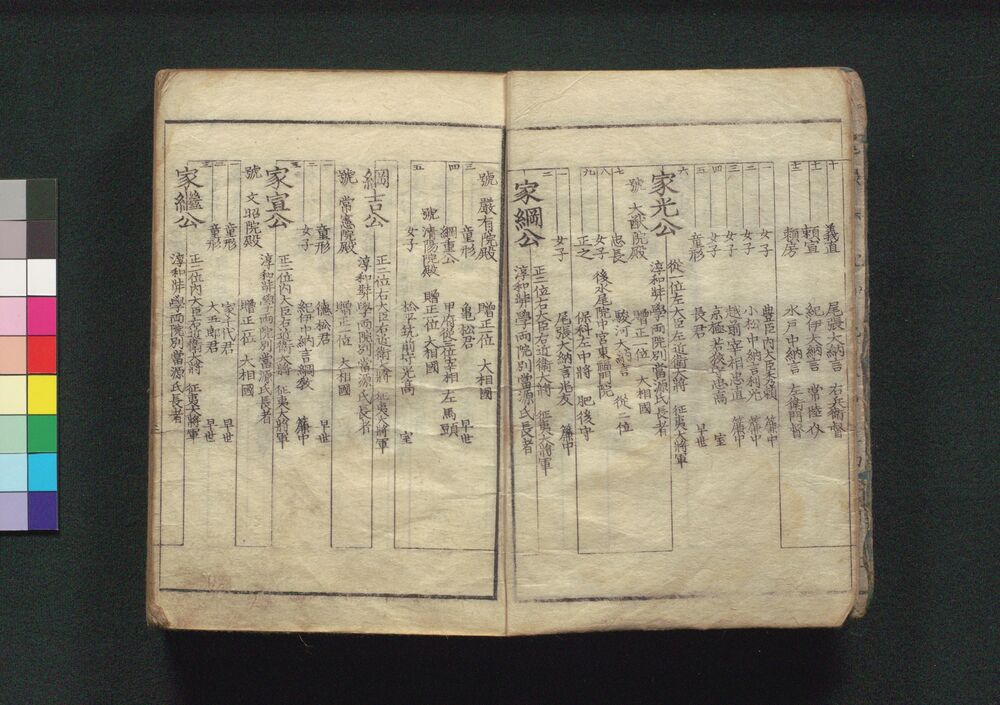 十 義直 尾張大納言 右兵衛督
十一 頼宣 紀伊大納言 常陸介
十二 頼房 水戸中納言 左衛門督
一 女子 豊臣内大臣秀頼 簾中
二 女子 小松中納言利光 簾中
三 女子 越前宰相忠直 簾中
四 女子 京極若狭守忠高 室
五 童形 長君 早世
六 家光公 從一位左大臣左近衛大將 征夷大將軍
淳和弉學両院別當源氏長者
號 大猷院殿 贈正一位 大相國
七 忠長 駿河大納言 從二位
八 女子 後水尾院中宮東福門院
九 正之 保科左中將 肥後守
一 女子 尾張大納言光友 簾中
二 家綱公 正二位右大臣右近衛大將 征夷大將軍
淳和弉學両院別當源氏長者
號 嚴有院殿 贈正一位 大相國
三 童形 亀松君 早世
四 綱重公 甲府從三位宰相 左馬頭
號 清陽院殿 贈正一位 大相國
五 女子 松平筑前守光高 室
綱吉公 正二位右大臣右近衛大將 征夷大將軍
淳和弉學両院別當源氏長者
號 常憲院殿 贈正一位 大相國
一 童形 德松君 早世
二 女子 紀伊中納言綱教 簾中
三 家宣公 正二位内大臣右近衛大將 征夷大將軍
淳和弉學両院別當源氏長者
號 文昭院殿 贈正一位 大相國
一 童形 家千代君 早世
二 童形 大五郎君 早世
三 家繼公 正二位内大臣右近衛大將 征夷大將軍
淳和弉學両院別當源氏長者